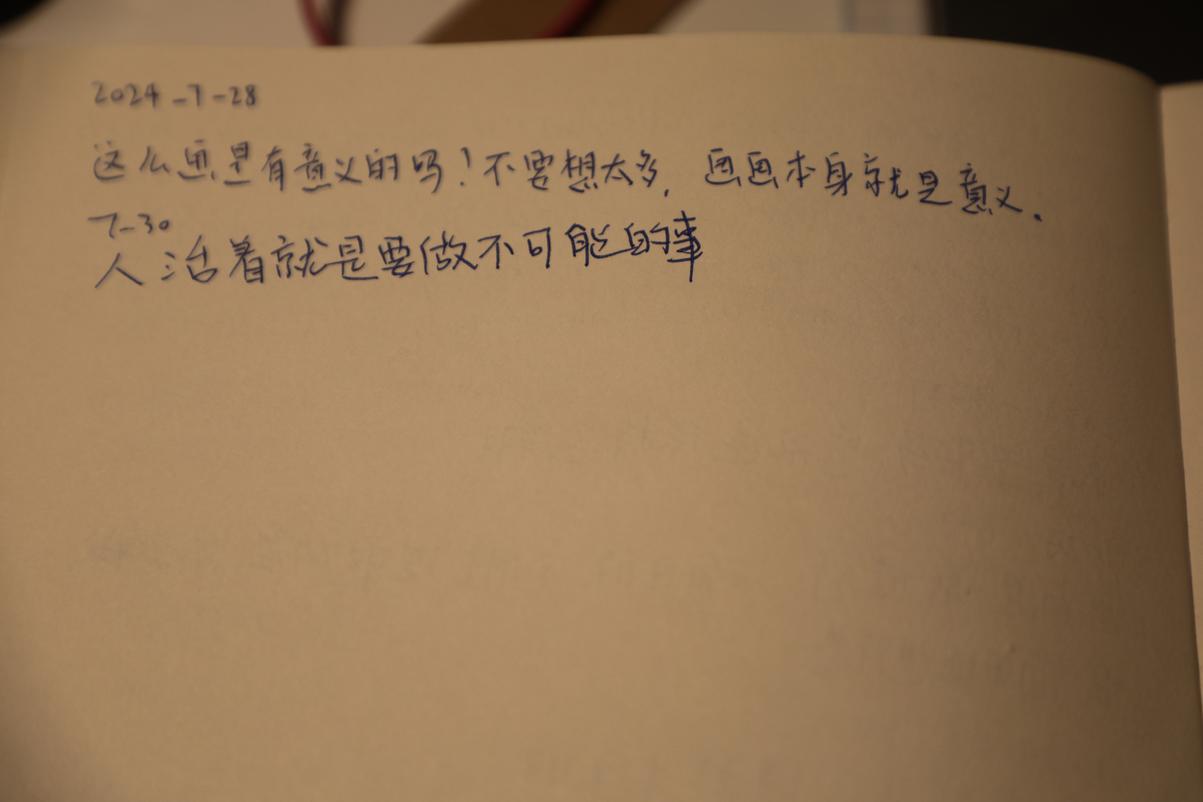 2024-7-28
这么画是有意义的吗！不要想太多，画画本身就是意义。
7-30
人活着就是要做不可能的事